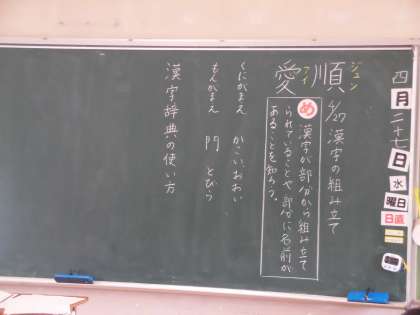 四月二十七日
水
曜日
日直
順
ジュン
愛
アイ
4/27 漢字の組み立て
め
漢字が部分から組み立て
られていることや部分に名前が
あることを知ろう。
くにがまえ かこい、おおい
もんがまえ 門 とびら
漢字辞典の使い方